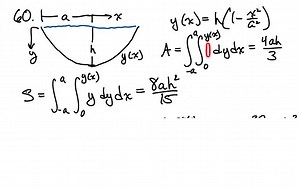 60. a x y(x) = h(1 - x²/a²)
y h y(x) A = ∫_{-a}^{a} ∫_{0}^{y(x)} dy dx = 4ah/3
S = ∫_{-a}^{a} ∫_{0}^{y(x)} y dy dx = 8ah²/15